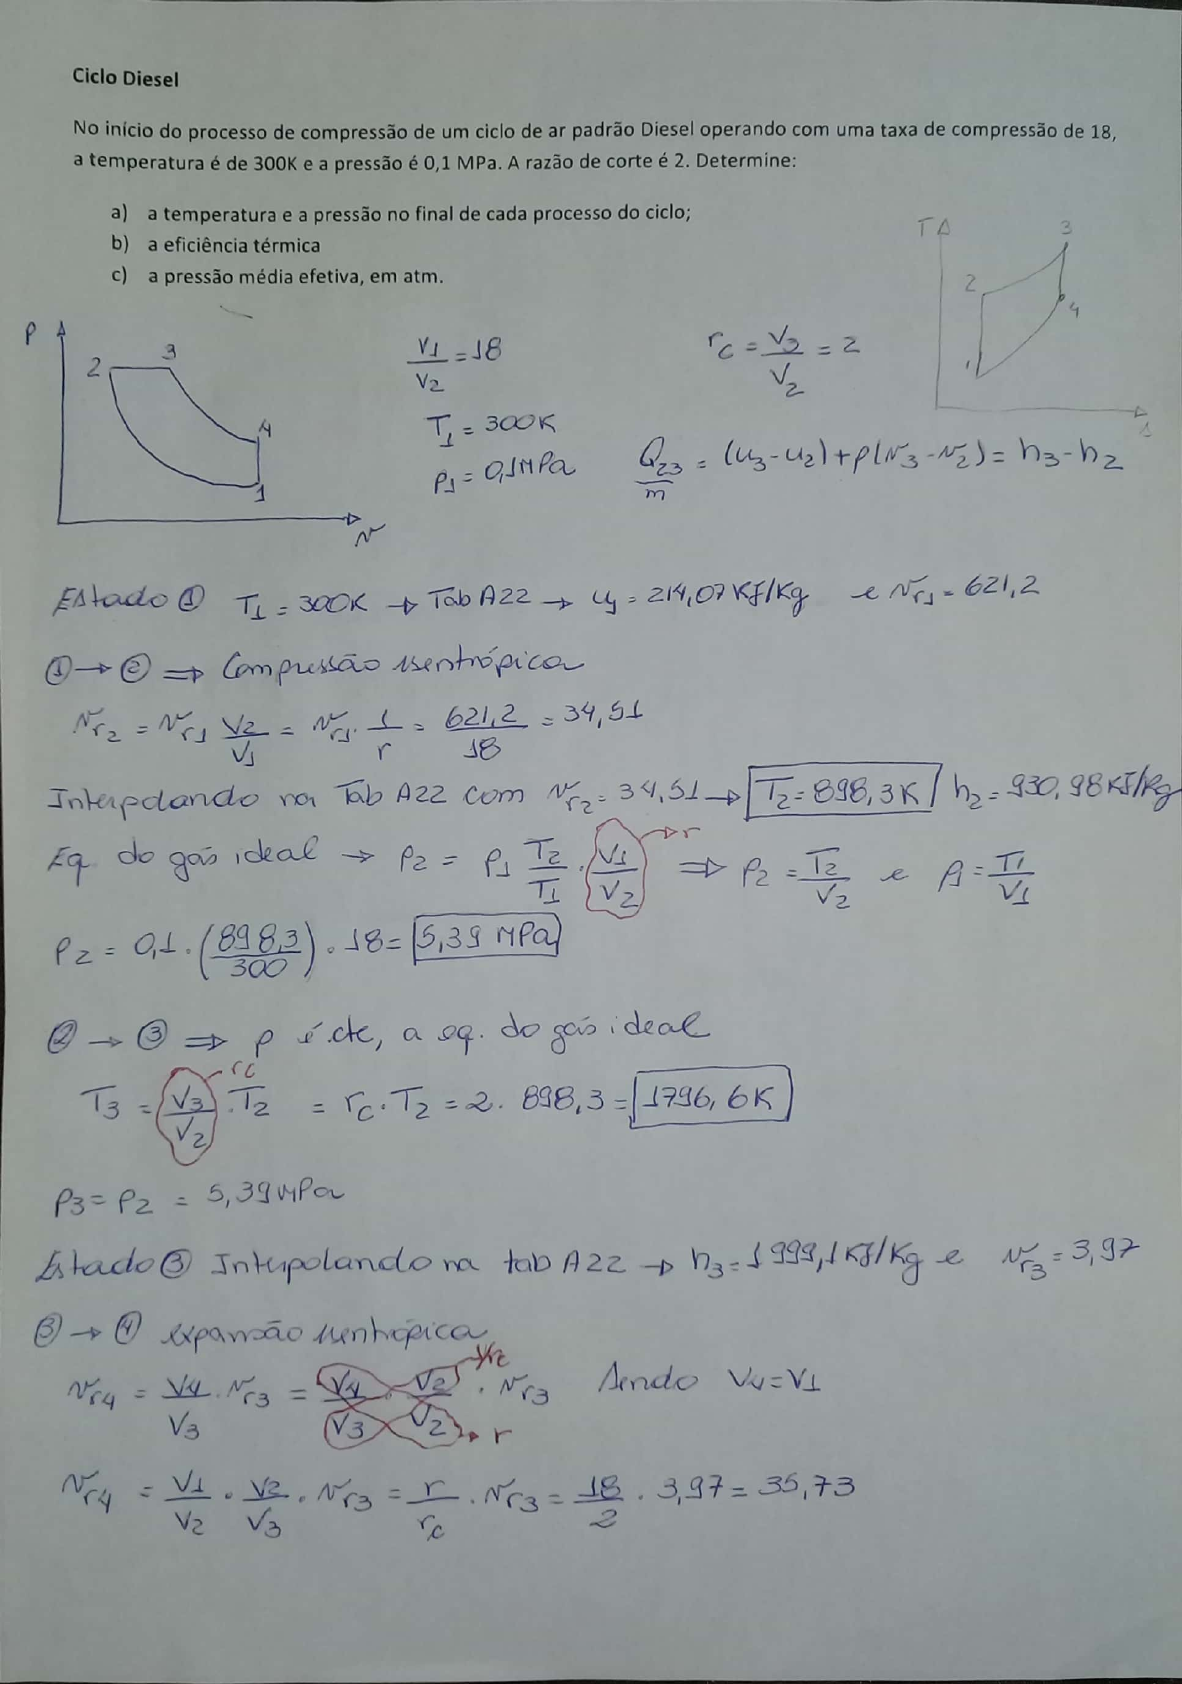 Ciclo Diesel
No início do processo de compressão de um ciclo de ar padrão Diesel operando com uma taxa de compressão de 18,
a temperatura é de 300K e a pressão é 0,1 MPa. A razão de corte é 2. Determine:
a) a temperatura e a pressão no final de cada processo do ciclo;
b) a eficiência térmica
c) a pressão média efetiva, em atm.
T 3 2 4 1 s
P 2 3 4 1 v
V1/V2 = 18
rc = V3/V2 = 2
T1 = 300K
p1 = 0,1MPa
Q23/m = (u3-u2)+p(v3-v2) = h3-h2
Estado ① T1 = 300K → Tab A22 → u1 = 214,07 KJ/Kg e vr1 = 621,2
① → ② ⇒ Compressão isentrópica
vr2 = vr1 V2/V1 = vr1 · 1/r = 621,2/18 = 34,51
Interpolando na Tab A22 com vr2 = 34,51 → T2 = 898,3K / h2 = 930,98 KJ/Kg
Eq. do gás ideal → P2 = P1 T2/T1 · V1/V2 → r ⇒ P2 = T2/V2 e P1 = T1/V1
P2 = 0,1 · (898,3/300) · 18 = 5,39 MPa
② → ③ ⇒ p é cte, a eq. do gás ideal
T3 = V3/V2 · T2 = rc · T2 = 2 · 898,3 = 1796,6K
rc
P3 = P2 = 5,39 MPa
Estado ③ Interpolando na tab A22 → h3 = 1999,1 KJ/Kg e vr3 = 3,97
③ → ④ expansão isentrópica
vr4 = V4/V3 · vr3 = V4/V3 · V2/V2 · vr3 Sendo V4 = V1
1/rc
r
vr4 = V1/V2 · V2/V3 · vr3 = r/rc · vr3 = 18/2 · 3,97 = 35,73